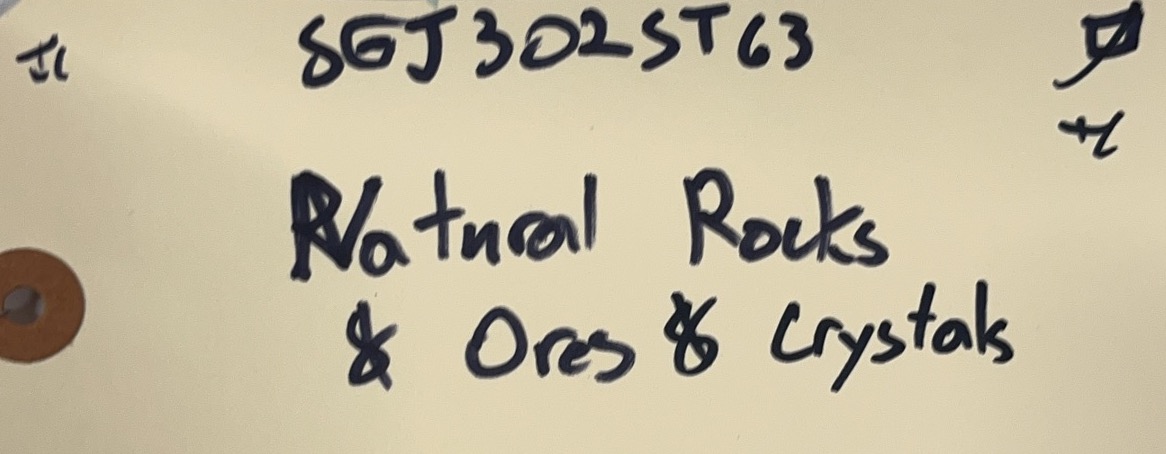 SGJ302ST63
Natural Rocks
& Ores & Crystals